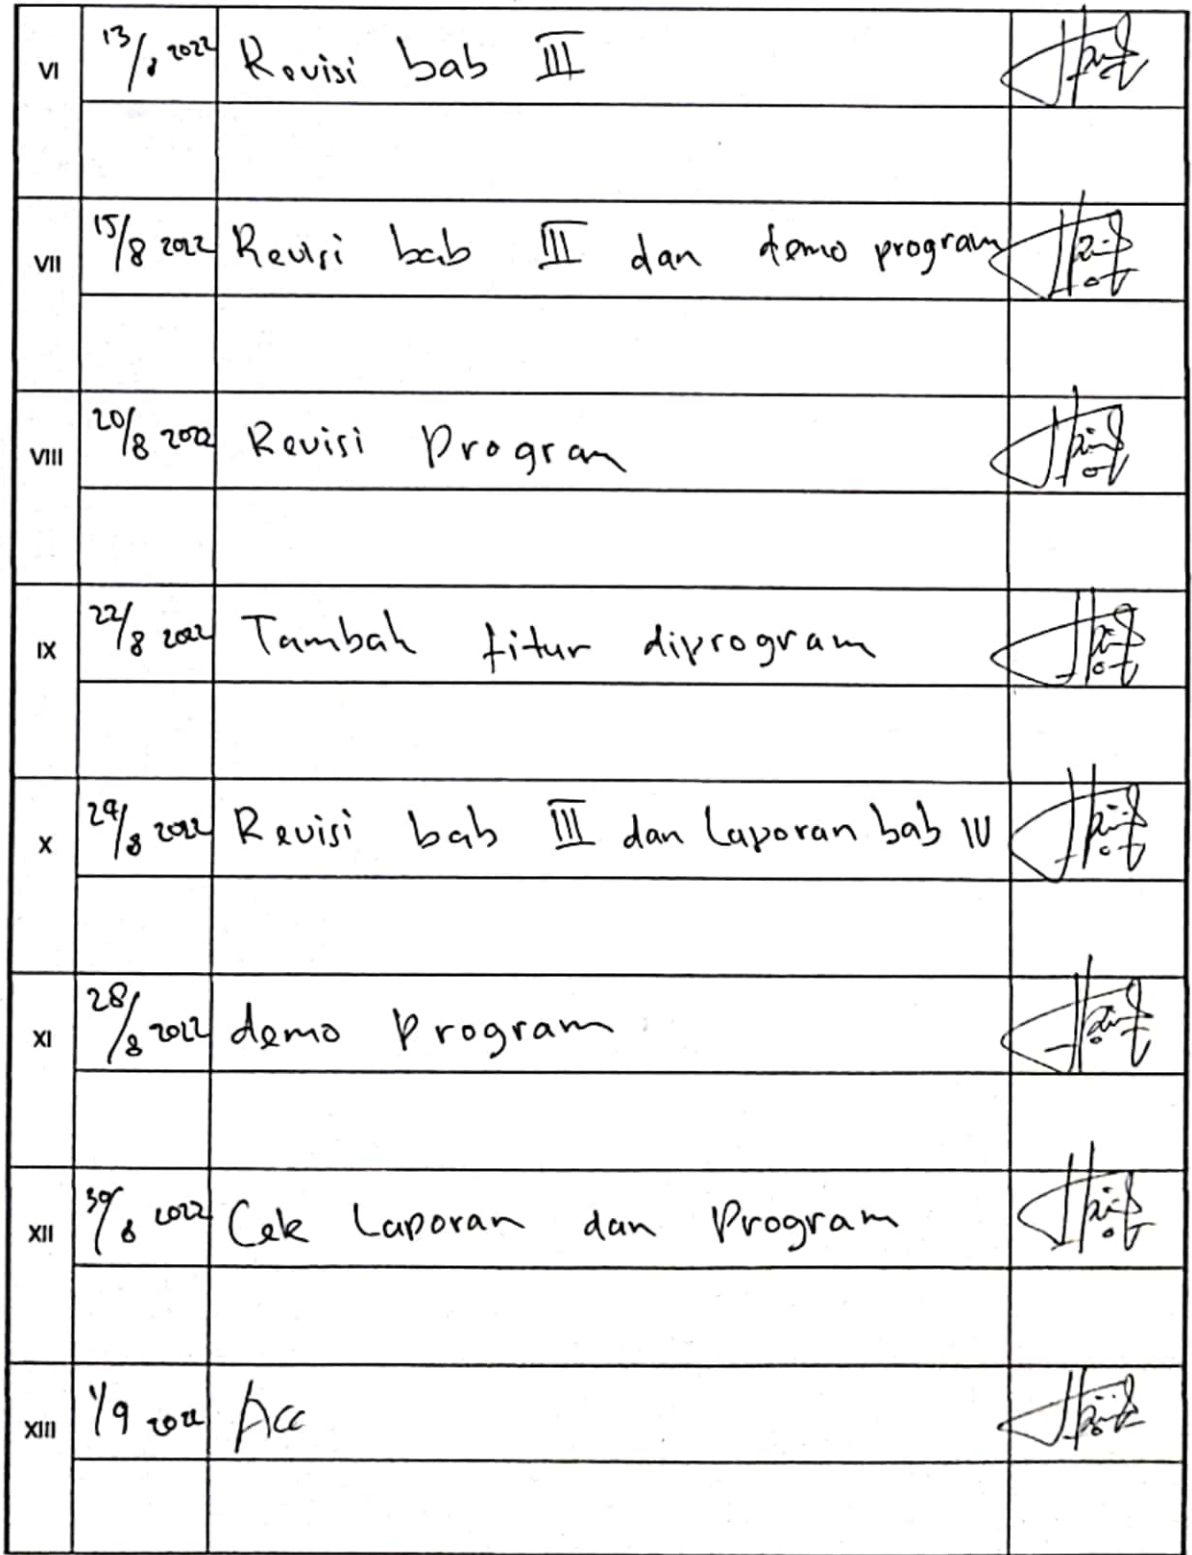 VI 13/8 2022 Revisi bab III
VII 15/8 2022 Revisi bab III dan demo program
VIII 20/8 2022 Revisi Program
IX 22/8 2022 Tambah fitur diprogram
X 24/8 2022 Revisi bab III dan Laporan bab IV
XI 28/8 2022 demo Program
XII 30/8 2022 Cek Laporan dan Program
XIII 1/9 2022 Acc